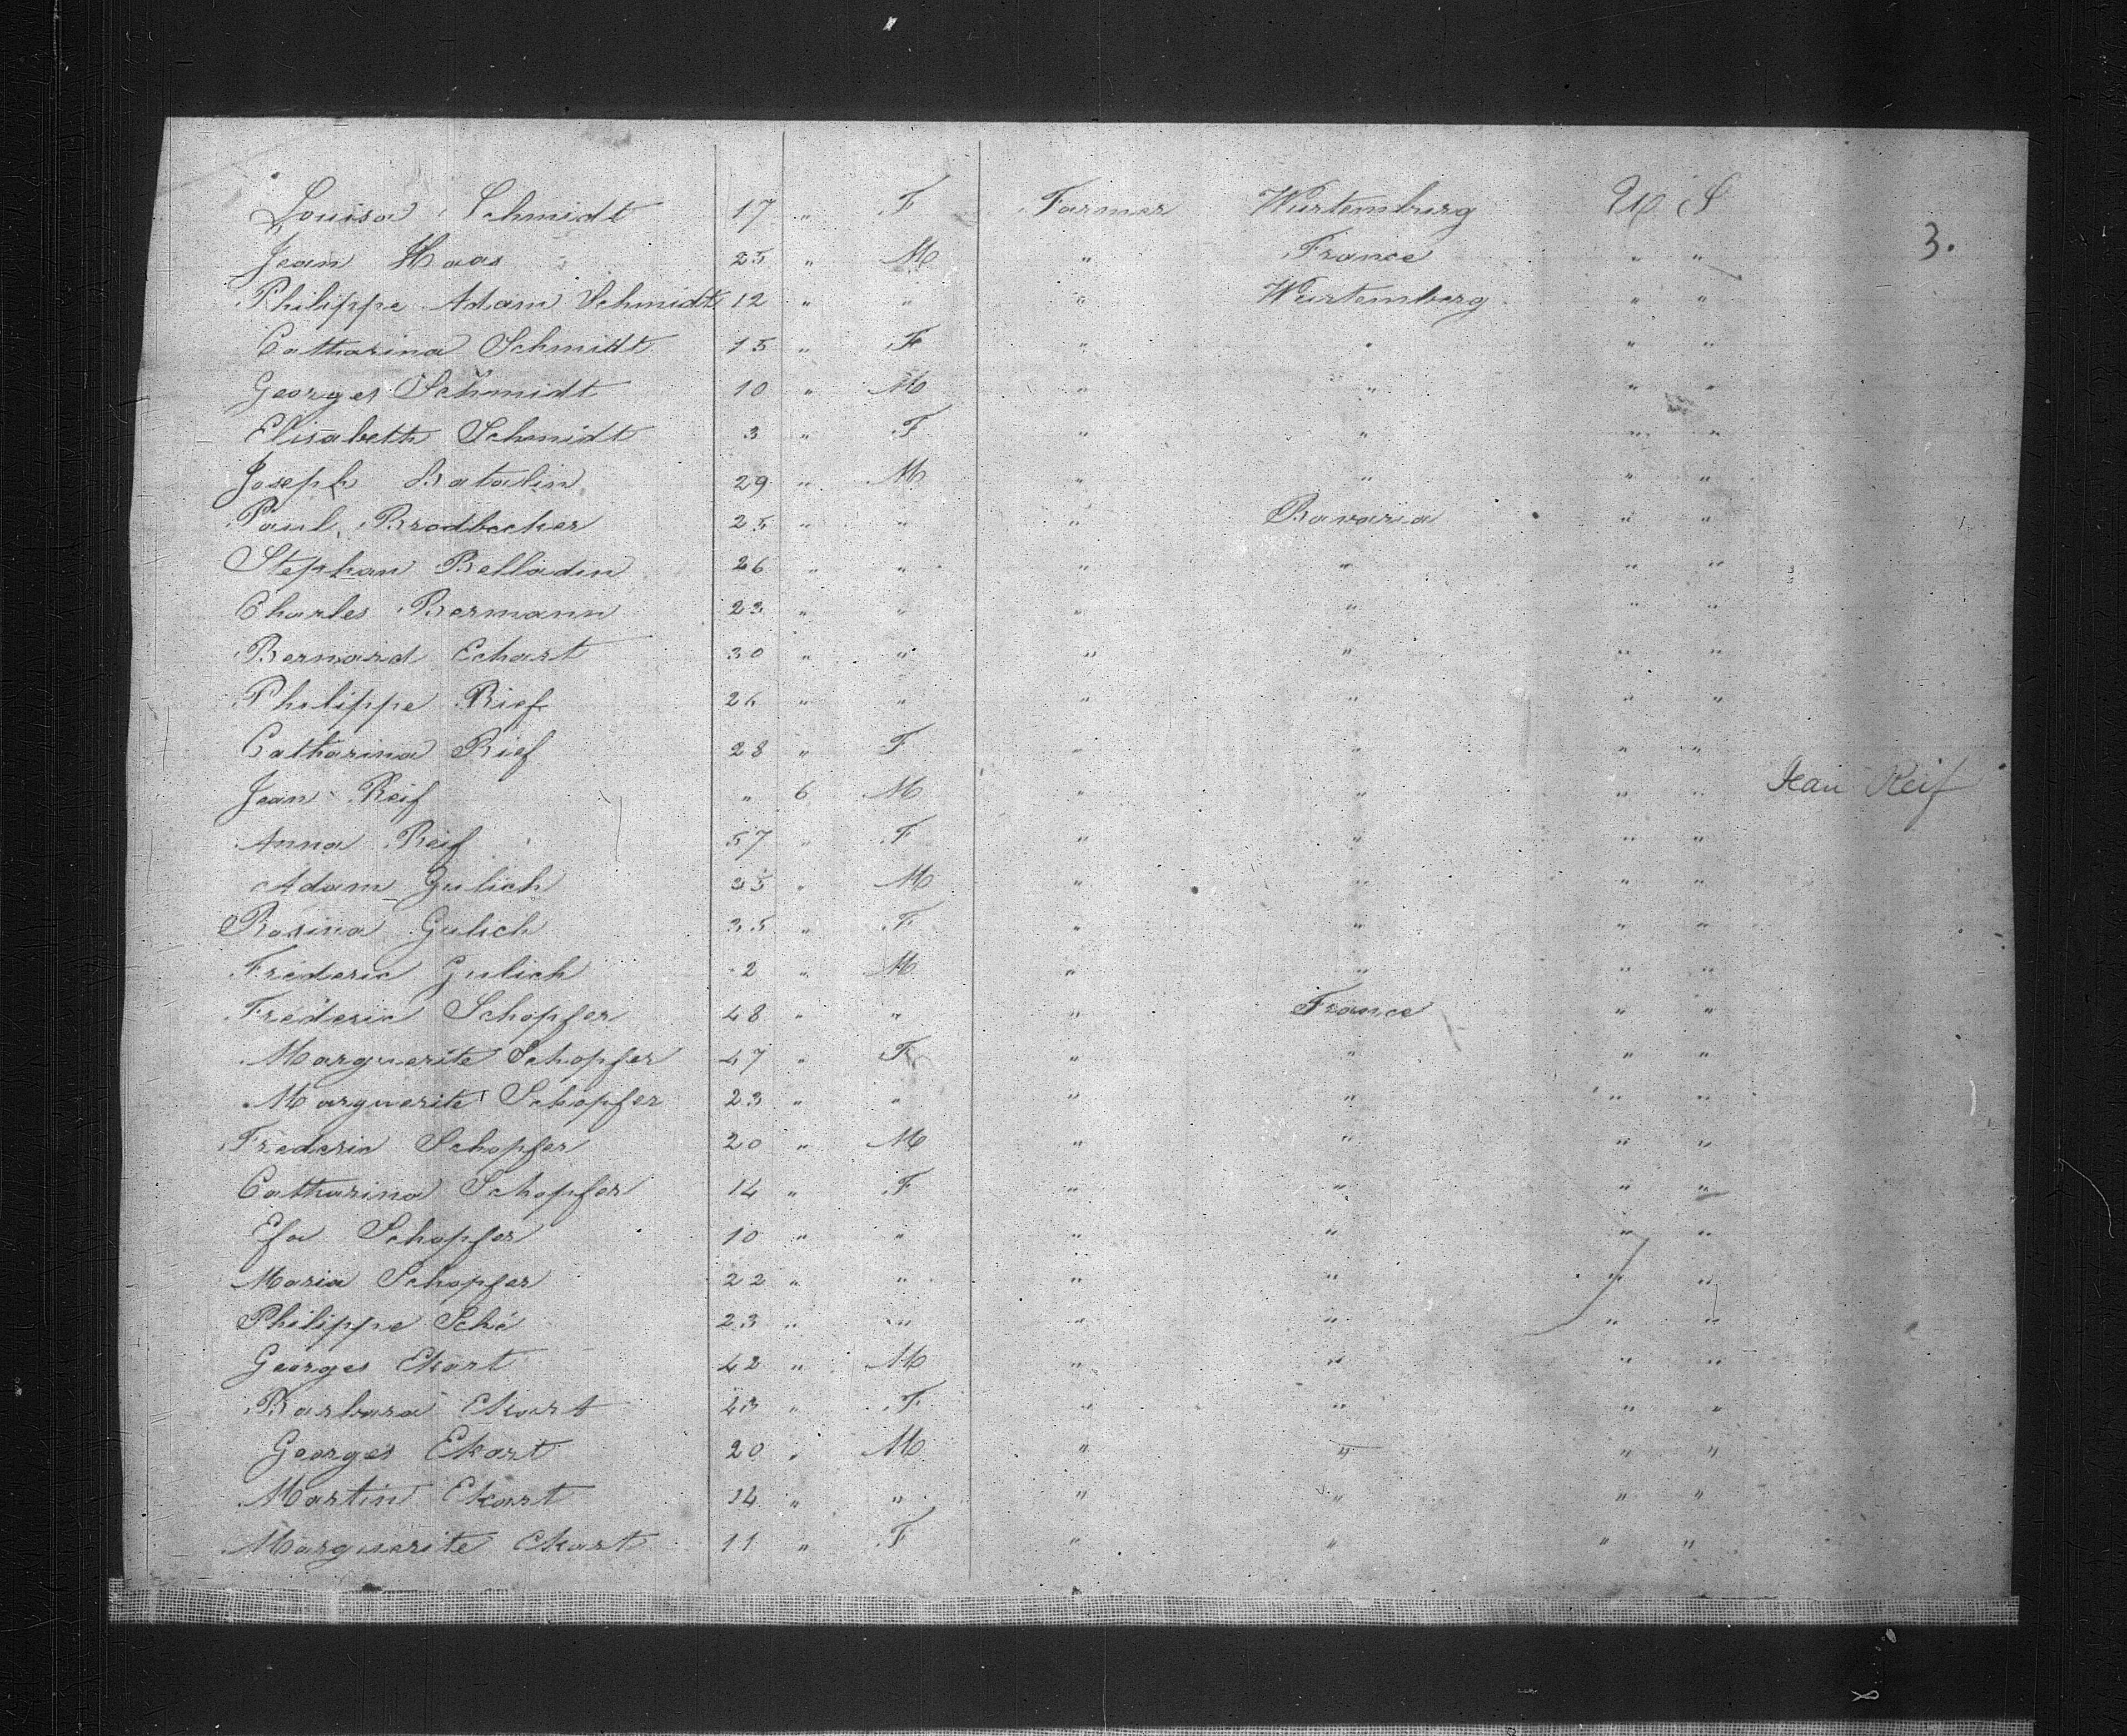 Louisa Schmidt 17 " F Farmer Wurtemburg U S
3.
Jean Haas 25 " M " France " "
Philippe Adam Schmidt 12 " " " Wurtemberg " "
Catharina Schmidt 15 " F " " " "
Georges Schmidt 10 " M " " " "
Elisabeth Schmidt 3 " F " " " "
Joseph Batalin 29 " M " " " "
Paul Brodbecker 25 " " " Bavaria " "
Stephan Belladin 26 " " " " " "
Charles Bermann 23 " " " " " "
Bernard Echart 30 " " " " " "
Philippe Rief 26 " " " " " "
Catharina Rief 28 " F " " " "
Jean Reif " 6 M " " " " Jean Reif
Anna Reif 57 " F " " " "
Adam Gulich 35 " M " " " "
Rosina Gulich 35 " F " " " "
Fréderic Gulich 2 " M " " " "
Fréderic Schopfer 48 " " " France " "
Marguerite Schopfer 47 " F " " " "
Marguerite Schopfer 23 " " " " " "
Fréderic Schopfer 20 " M " " " "
Catharina Schopfer 14 " F " " " "
Efa Schopfer 10 " " " " " "
Maria Schopfer 22 " " " " " "
Philippe Sché 23 " " " " " "
Georges Ekart 42 " M " " " "
Barbara Ekart 43 " F " " " "
Georges Ekart 20 " M " " " "
Martin Ekart 14 " " " " " "
Marguerite Ekart 11 " F " " " "
8